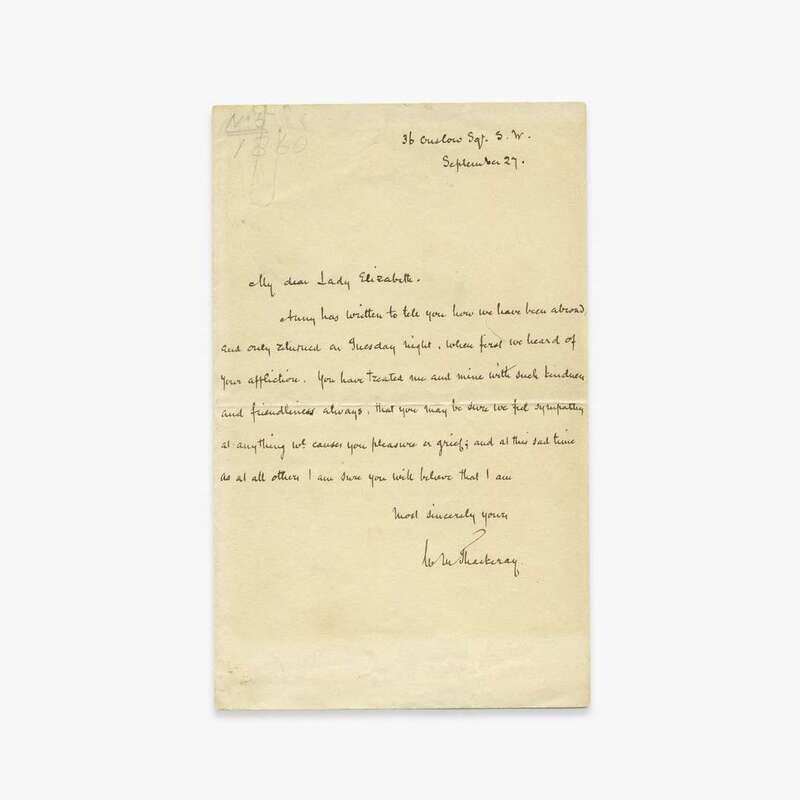 1860
36 Onslow Sqr. S. W.
September 27.
My dear Lady Elizabeth.
Anny has written to tell you how we have been abroad,
and only returned on Tuesday night, when first we heard of
your affliction. You have treated me and mine with such kindness
and friendliness always, that you may be sure we feel sympathy
at anything wh. causes you pleasure or grief; and at this sad time
as at all others I am sure you will believe that I am
Most sincerely yours
W M Thackeray.